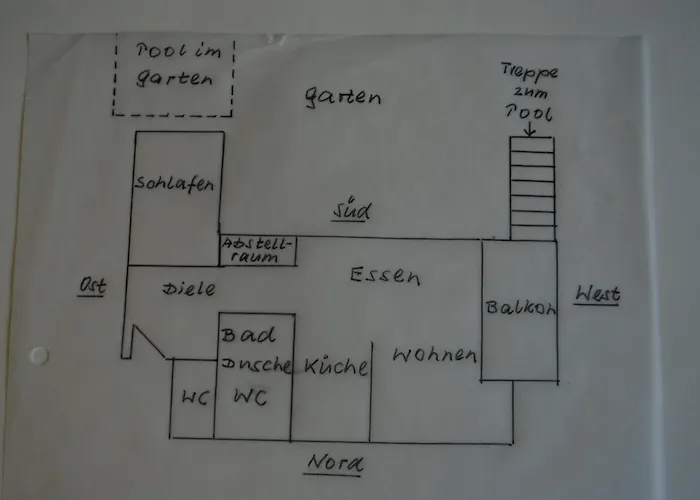 Pool im
garten
garten
Treppe
zum
Pool
Schlafen
Süd
Abstell-
raum
Essen
Ost
Diele
Balkon
West
Bad
Dusche
WC
Küche
Wohnen
WC
Nord